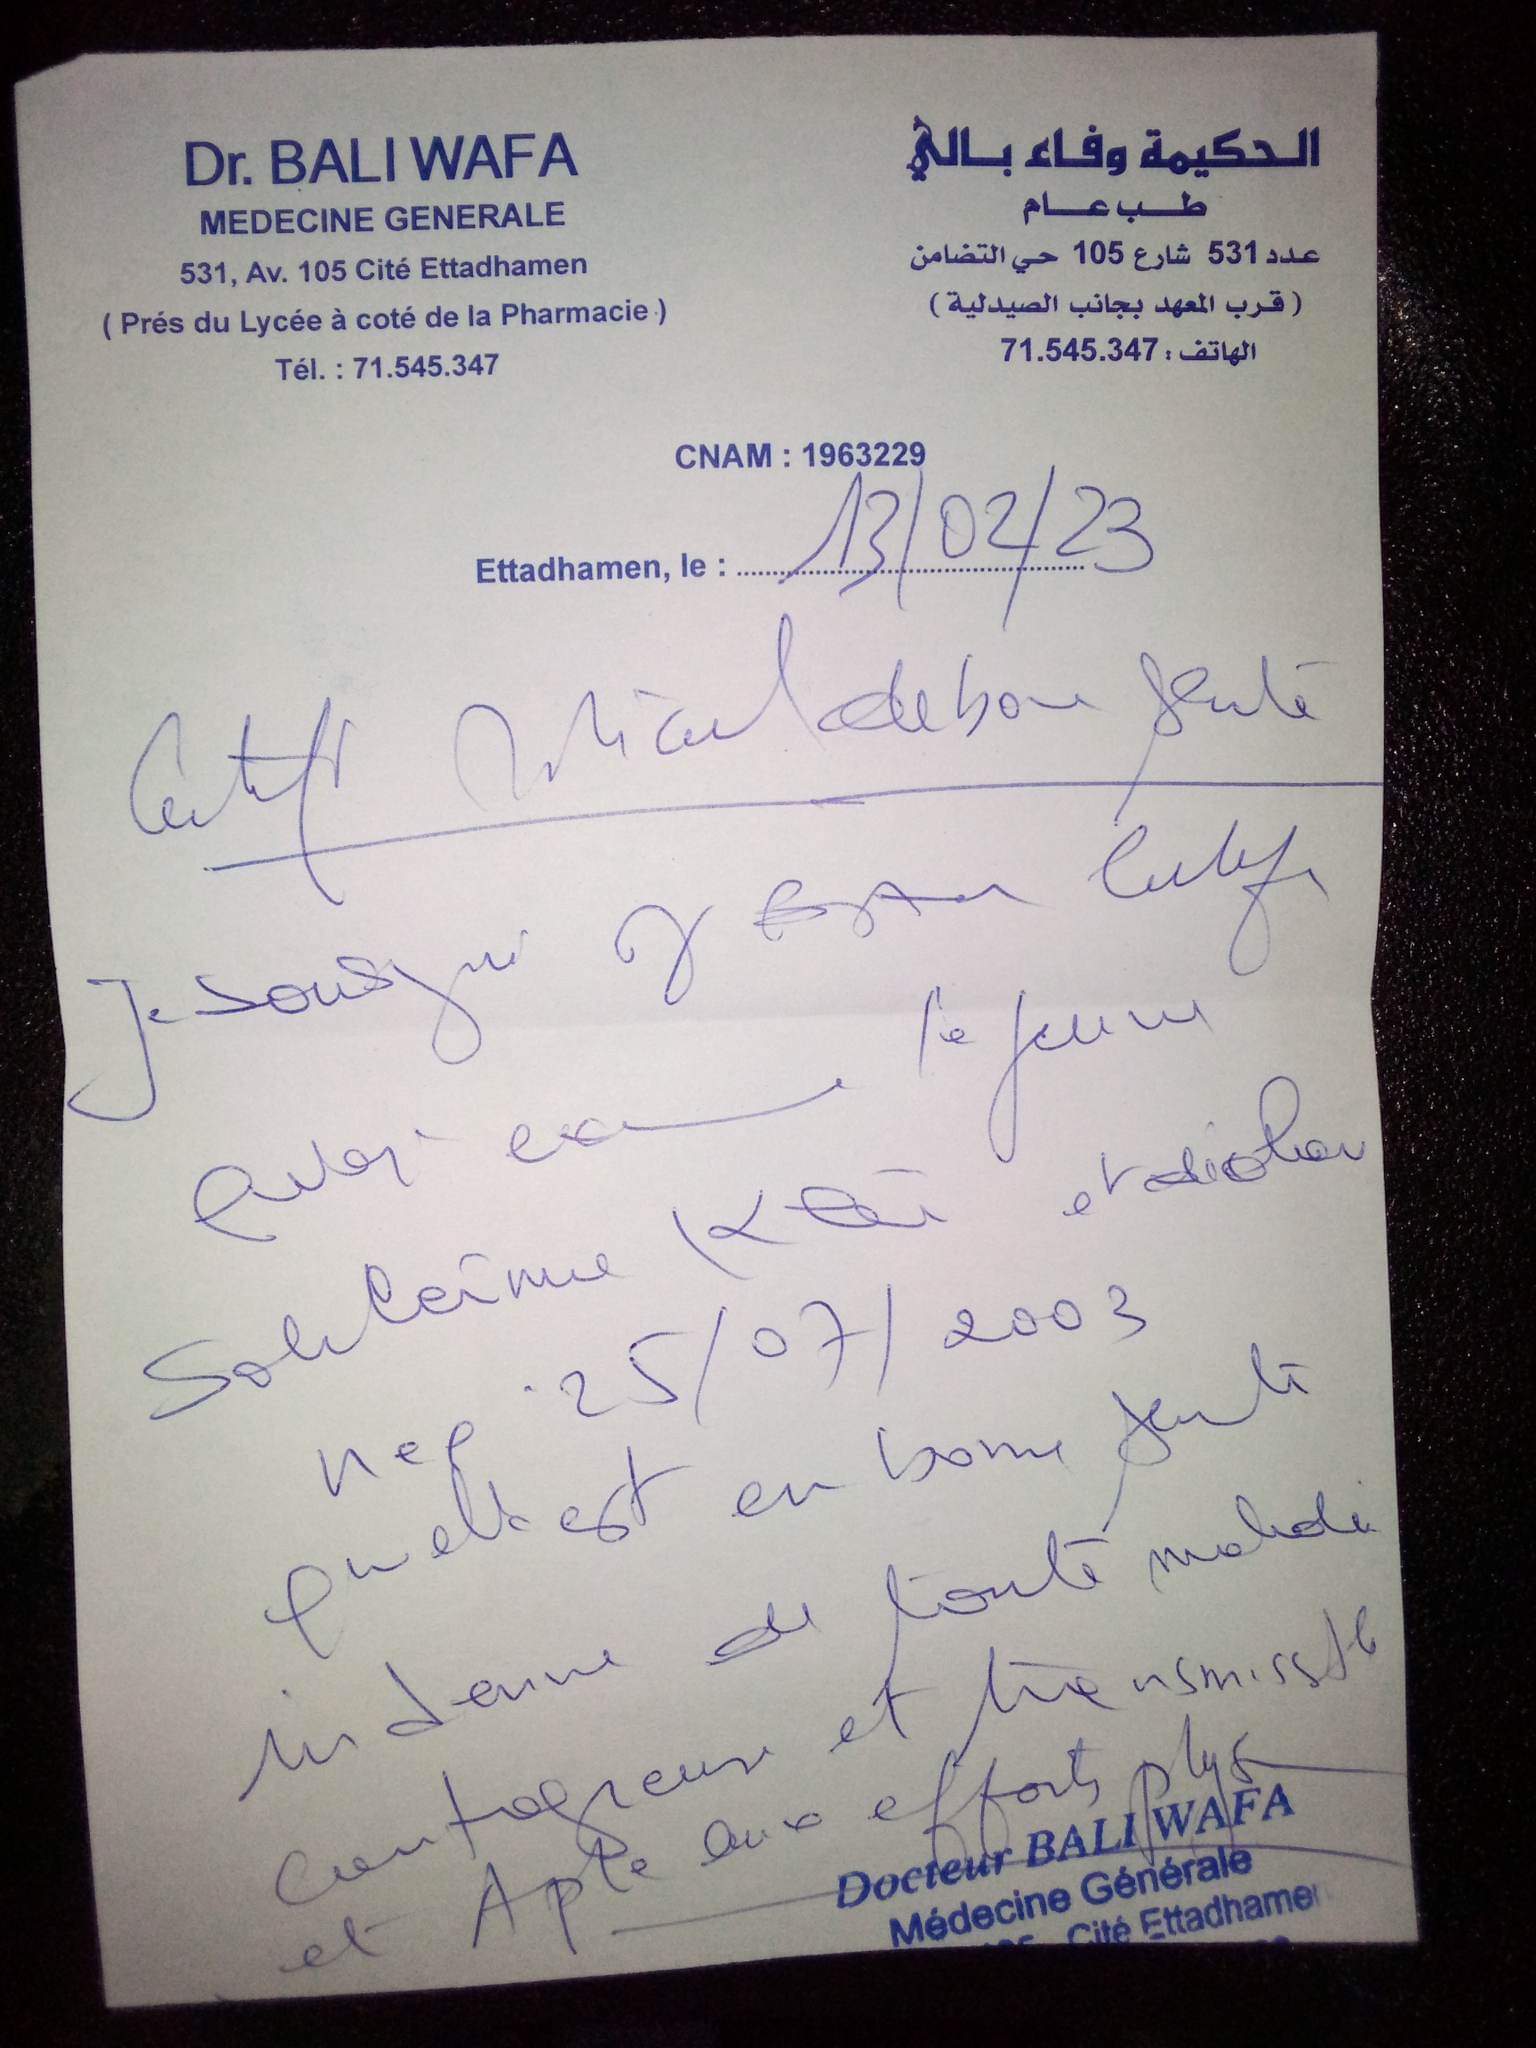 Dr. BALI WAFA
MEDECINE GENERALE
531, Av. 105 Cité Ettadhamen
( Prés du Lycée à coté de la Pharmacie )
Tél. : 71.545.347
الحكيمة وفاء بالي
طب عام
عدد 531 شارع 105 حي التضامن
( قرب المعهد بجانب الصيدلية )
الهاتف : 71.545.347
CNAM : 1963229
Ettadhamen, le : 13/02/23
Certif Médical de bonne santé
Je soussigné certifie
avoir le jeune
et déclare
née 25/07/2003
qu'elle est en bonne santé
indemne de toute maladie
contagieuse et transmissible
et Apte aux efforts
Docteur BALI WAFA
Médecine Générale
Cité Ettadhamen